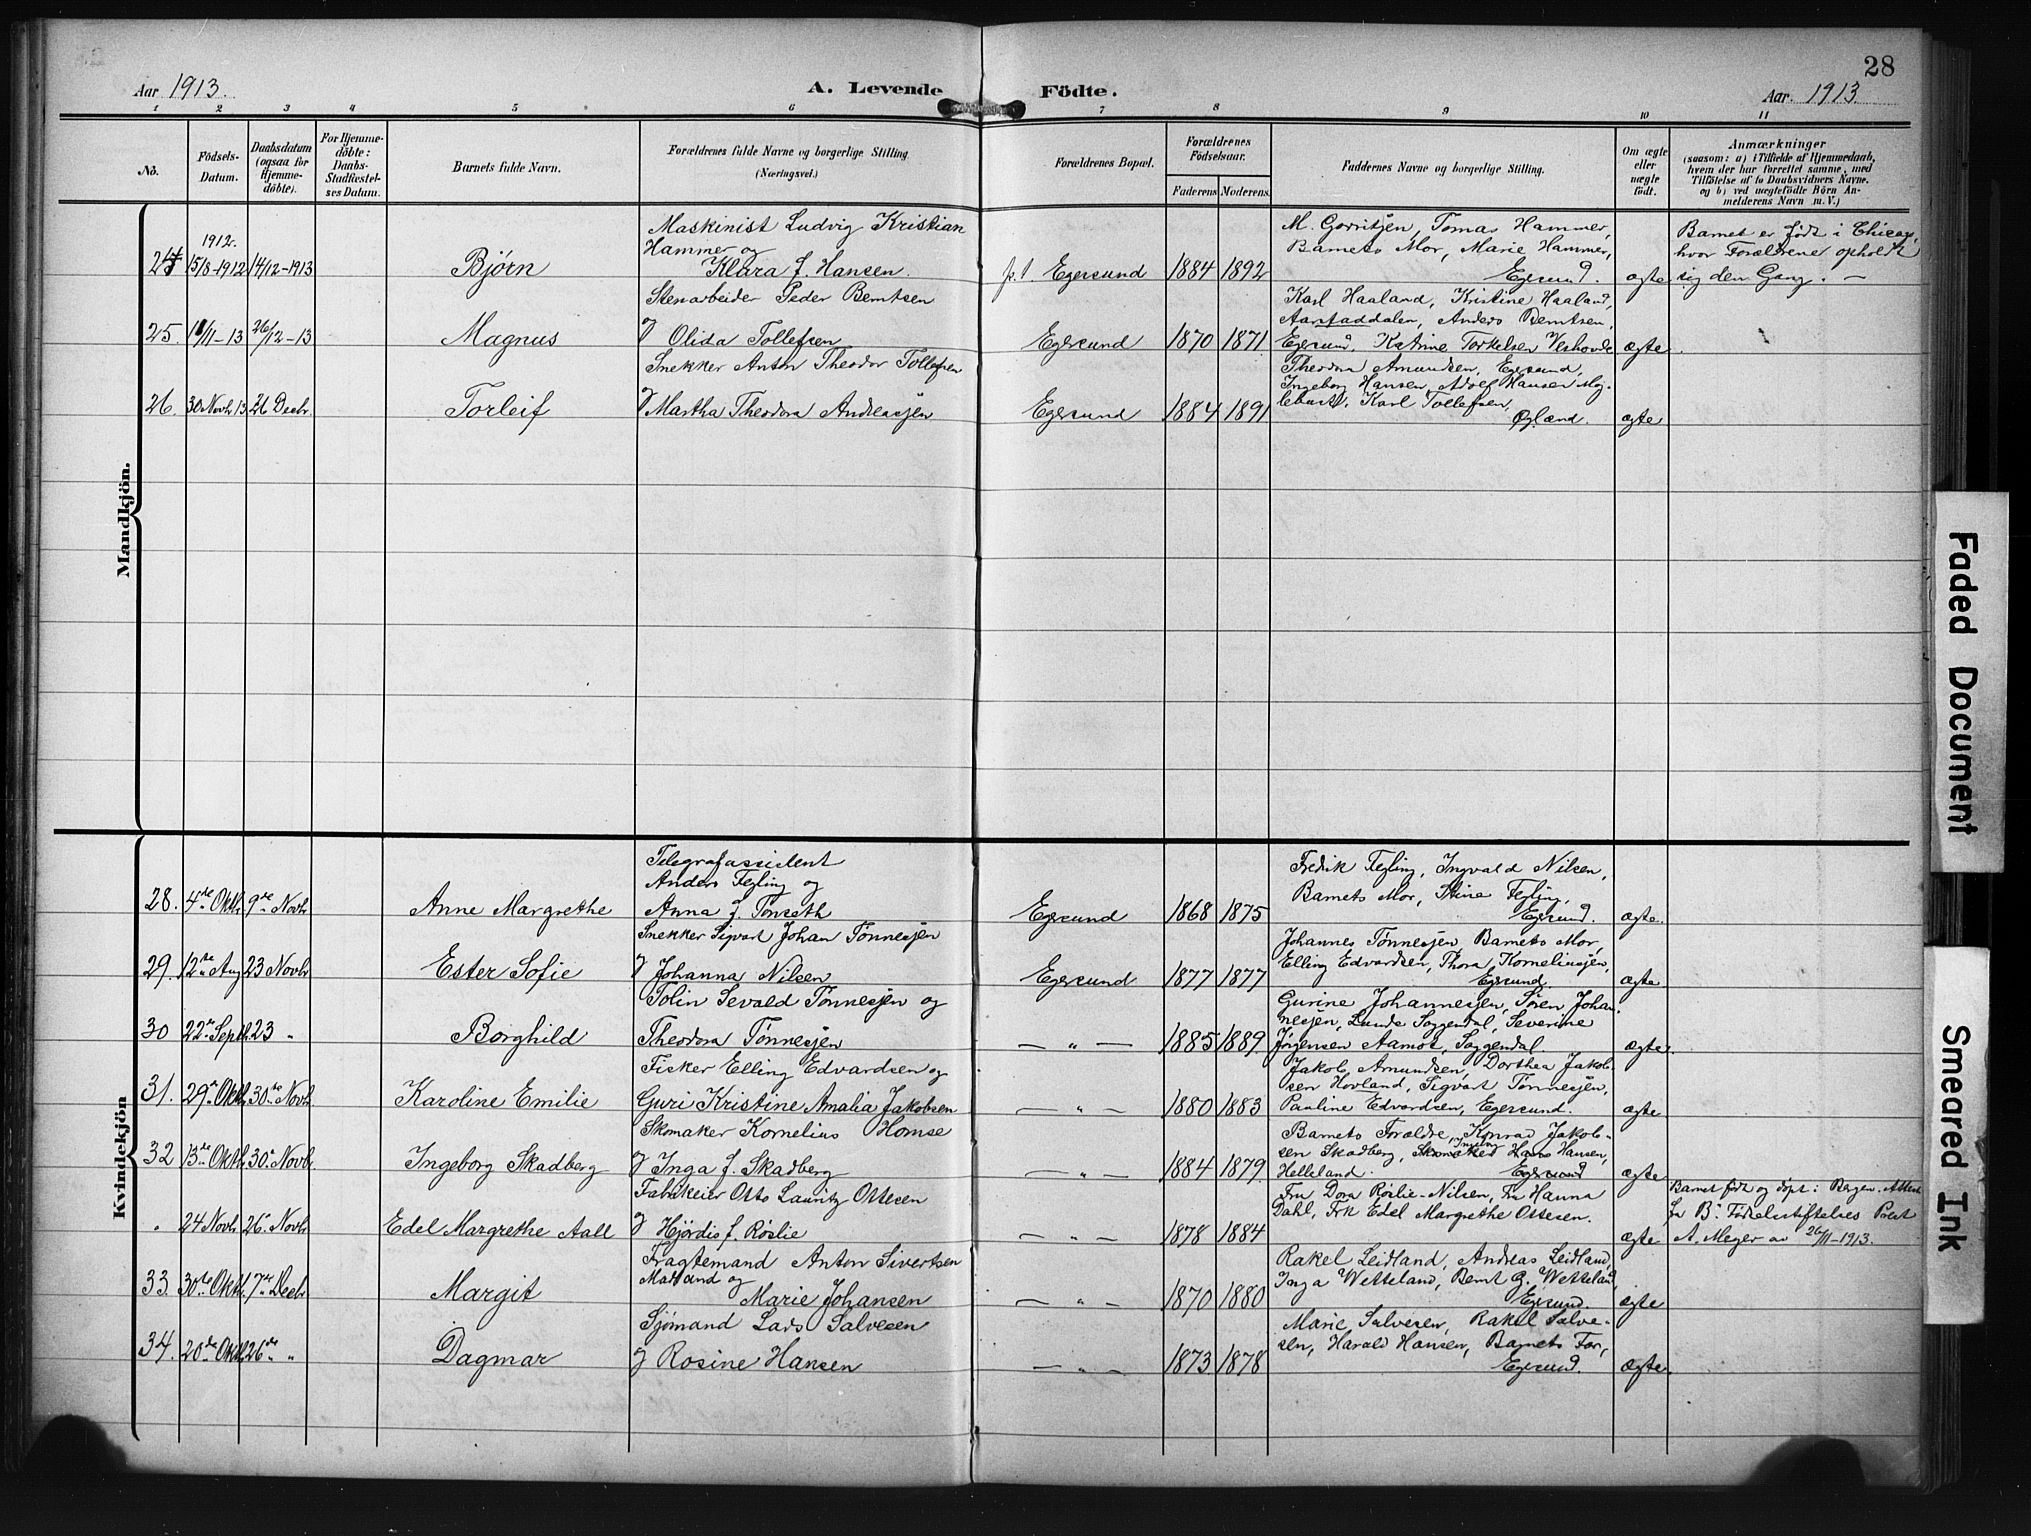 28
Aar 1913.
A. Levende Födte.
Aar. 1913.
1 2 3 4 5 6 7 8 9 10 11
No.
Födsels-Datum.
Daabsdatum (ogsaa for Hjemme-döbte).
For Hjemme-döbte: Daabs-Stadfæstel-ses Datum.
Barnets fulde Navn.
Forældrenes fulde Navne og borgerlige Stilling (Næringsvei.)
Forældrenes Bopæl.
Forældrenes Födselsaar.
Faderens Moderens.
Faddernes Navne og borgerlige Stilling.
Om ægte eller uægte födt.
Anmærkninger
(saasom: a) i Tilfælde af Hjemmedaab,
hvem der har forrettet samme, med
Tilföielse af to Daabsvidners Navne.
og b) ved uægtefödte Börn An-
melderens Navn m. V.)
Mandkjön.
24 1912. 15/8-1912 14/12-1913 Bjørn
Maskinist Ludvig Kristian
Hammer og
Klara f. Hansen.
p.t. Egersund 1884 1892
Tomas Hammer,
Barnets Mor, Marie Hammer,
Egersund. ægte
Barnet er født i Chicago,
hvor Forældrene opholdt
sig den Gang. —
25. 11/11-13 26/12-13 Magnus
Stenarbeider Peder Berntsen
og Olida Tollefsen
Egersund 1870 1871
Karl Haaland, Kristine Haaland,
Aarstaddalen, Anders Berntsen,
Egersund. Katrine Torkelsen Veshovde
ægte.
26. 30 Novbr 13 26 Decbr. Torleif
Snekker Anton Theodor Tollefsen
og Martha Theodora Andreassen
Egersund 1884 1891
Theodora Amundsen, Egersund,
Ingeborg Hansen, Adolf Hansen Mog-
lebust, Karl Tollefsen,
Øglænd. ægte
Kvindekjön
28. 4de Oktbr. 9de Novbr Anne Margrethe
Telegrafassistent
Anders Fegling og
Anna f. Tonseth
Egersund 1868 1875
Fredik Fegling, Ingvald Nilsen,
Barnets Mor, Stine Fegling,
Egersund. ægte.
29. 12te Aug 23 Novbr Ester Sofie
Snekker Sigvart Johan Tønnesen
og Johanna Nilsen
Egersund 1877 1877
Johannes Tønnesen, Barnets Mor,
Elling Edvardsen, Thora Korneliusen,
Egersund. ægte
30 22de Septbr. 23 " Borghild
Tolin Sevald Tønnesen og
Theodora Tønnesen
— " — 1885 1889
Gurine Johannesen, Søren Johan-
nesen, Lunde Soggendal, Severine
Jørgensen Aamot, Soggendal. ægte.
31. 29de Oktbr. 30te Novbr. Karoline Emilie
Fisker Elling Edvardsen og
Guri Kristine Amalia Jakobsen
— " — 1880 1883
Jakob Amundsen, Dorthea Jakob-
sen Hovland, Sigvart Tønnesen,
Pauline Edvardsen, Egersund. ægte
32 13de Oktbr. 30te Novbr. Ingeborg Skadberg
Skomaker Kornelius Homse
og Inga f. Skadberg
— " — 1884 1879
Barnets Forældre, Konrad Jakob-
sen Skadberg, Skomaker Hans Hansen,
Helleland. Egersund ægte
" 24 Novbr. 26. Novbr. Edel Margrethe Aall
Fabrikeier Otto Lauritz Ottesen
og Hjördis f. Røslie
— " — 1878 1884
Fru Dora Røslie-Nilsen, Fru Hanna
Dahl, Frk Edel Margrethe Ottesen.
ægte
Barnet født og døpt i Bergen. Attest
fra B. Fødselsstiftelses Prest
A. Meyer av 26/11-1913.
33. 30te Oktbr. 7de Decbr Margit
Fragtemand Anton Sivertsen
Maaland og
Marie Johansen
— " — 1870 1880
Rakel Leidland, Andreas Leidland,
Inga Wetteland, Bernt G. Wetteland,
Egersund. ægte
34. 20de Oktbr. 26de " Dagmar
Sjømand Lars Salvesen
og Rosine Hansen
— " — 1873 1878
Marie Salvesen, Rakel Salve-
sen, Harald Hansen, Barnets Far,
Egersund. ægte.
Faded Document
Smeared Ink